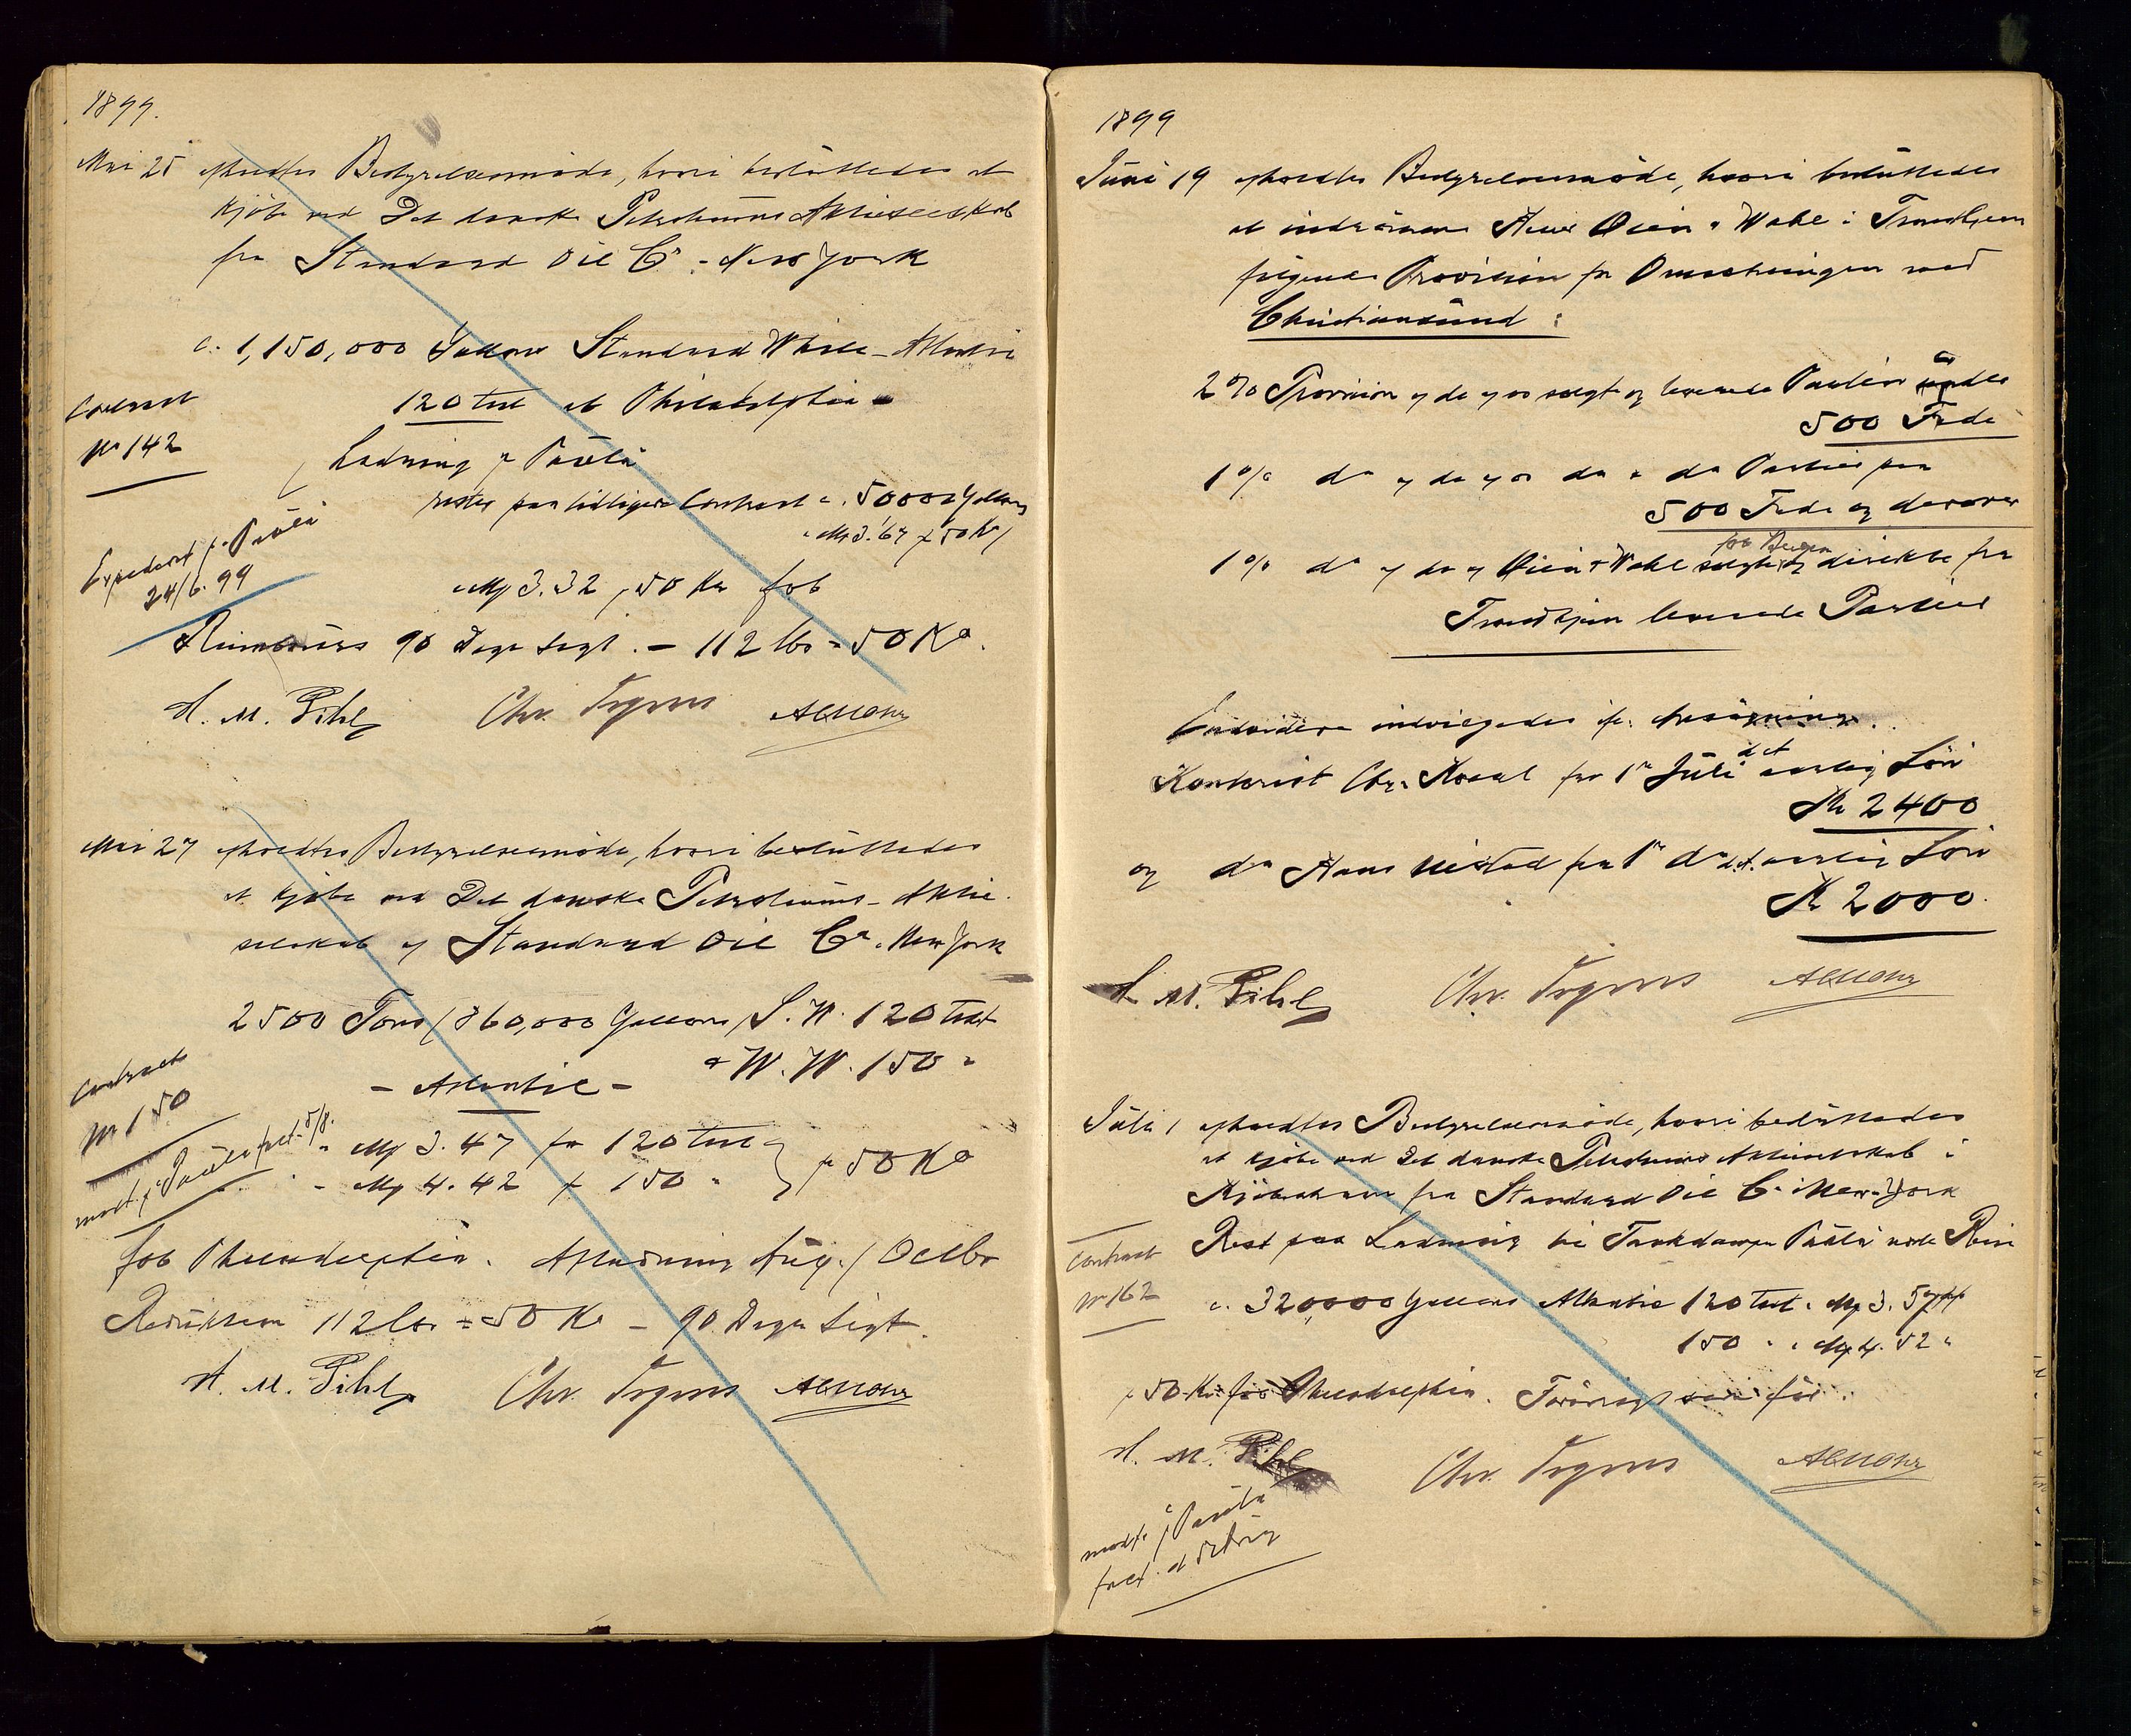 1899.
Mai 25 afholdtes Bestyrelsesmøde, hvori besluttedes at
kjöbe ved Det danske Petroleums Aktieselskab
fra Standard Oil Co. New York
c. 1,150,000 Gallons Standard White - Atlantic
120 test ab Philadelphia
Contract
No 142
Ladning pr Paula
rester paa tidligere Contract c. 50000 Gallons
Mrs 3.67 pr 50 Ko
Expederet pr Paula
24/6. 99
a Mrs 3.32 pr 50 Ko fob
Rimbours 90 Dage Sigt. - 112 lbs = 50 Ko.
H. M. Pihl Chr. Irgens
Mai 27 afholdtes Bestyrelsesmøde, hvori besluttedes
at kjøbe ved Det danske Petroleums - Aktie
selskab af Standard Oil Co. New York
2500 Tons / 860,000 Gallons / S. W. 120 test
& W. W. 150 "
- Atlantic -
Contract
No 150
modt. pr Paula 5/8.
a Mrs 3.47 for 120 test
" Mrs 4.42 " 150 "
pr 50 Ko
fob Philadelphia. Afladning Aug. / Octbr
Reduktion 112 lbs = 50 Ko - 90 Dage Sigt.
H. M. Pihl Chr. Irgens
1899
Juni 19 afholdtes Bestyrelsesmøde, hvori besluttedes
at indrömme Herrer Öien & Wahl i Trondhjem
følgende Provision for Omsetningen ved
Christiansund:
2 % Provision af de af os solgte og leverede Partier under
500 Fade
1 % do af de af os do & do Partier paa
500 Fade og derover
fob Bergen
1 % do af de af Öien & Wahl solgte og direkte fra
Trondhjem leverede Partier
Endvidere indvilgedes
Kontorist Chr. fra 1ste Juli d.A. aarlig Løn
Kr 2400
og do Hans fra 1ste do d.A. aarlig Løn
Kr 2000.
H. M. Pihl Chr. Irgens
Juli 1 afholdtes Bestyrelsesmøde, hvori besluttedes
at kjøbe ved Det danske Petroleums Aktieselskab i
Kjöbenhavn fra Standard Oil Co. i New-York
Rest paa Ladning til Tankdamper Paula Reise
Contract
No 162
c. 320,000 Gallons Atlantic 120 test a Mrs 3.57
150 " " Mrs 4.52 "
pr 50 Ko fob Philadelphia. Forövrigt som før.
H. M. Pihl Chr. Irgens
modt. pr Paula